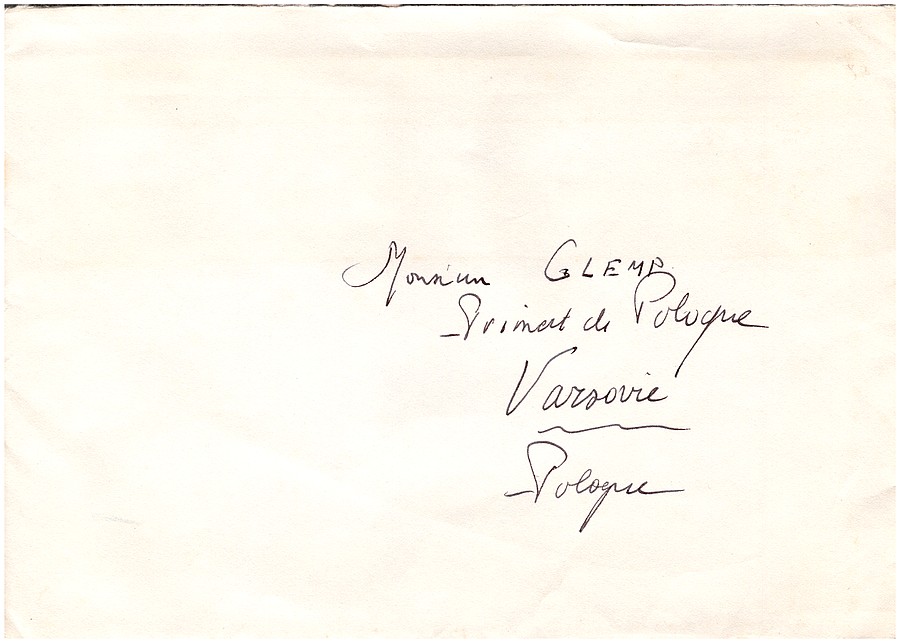 Monsieur GLEMP
Primat de Pologne
Varsovie
Pologne